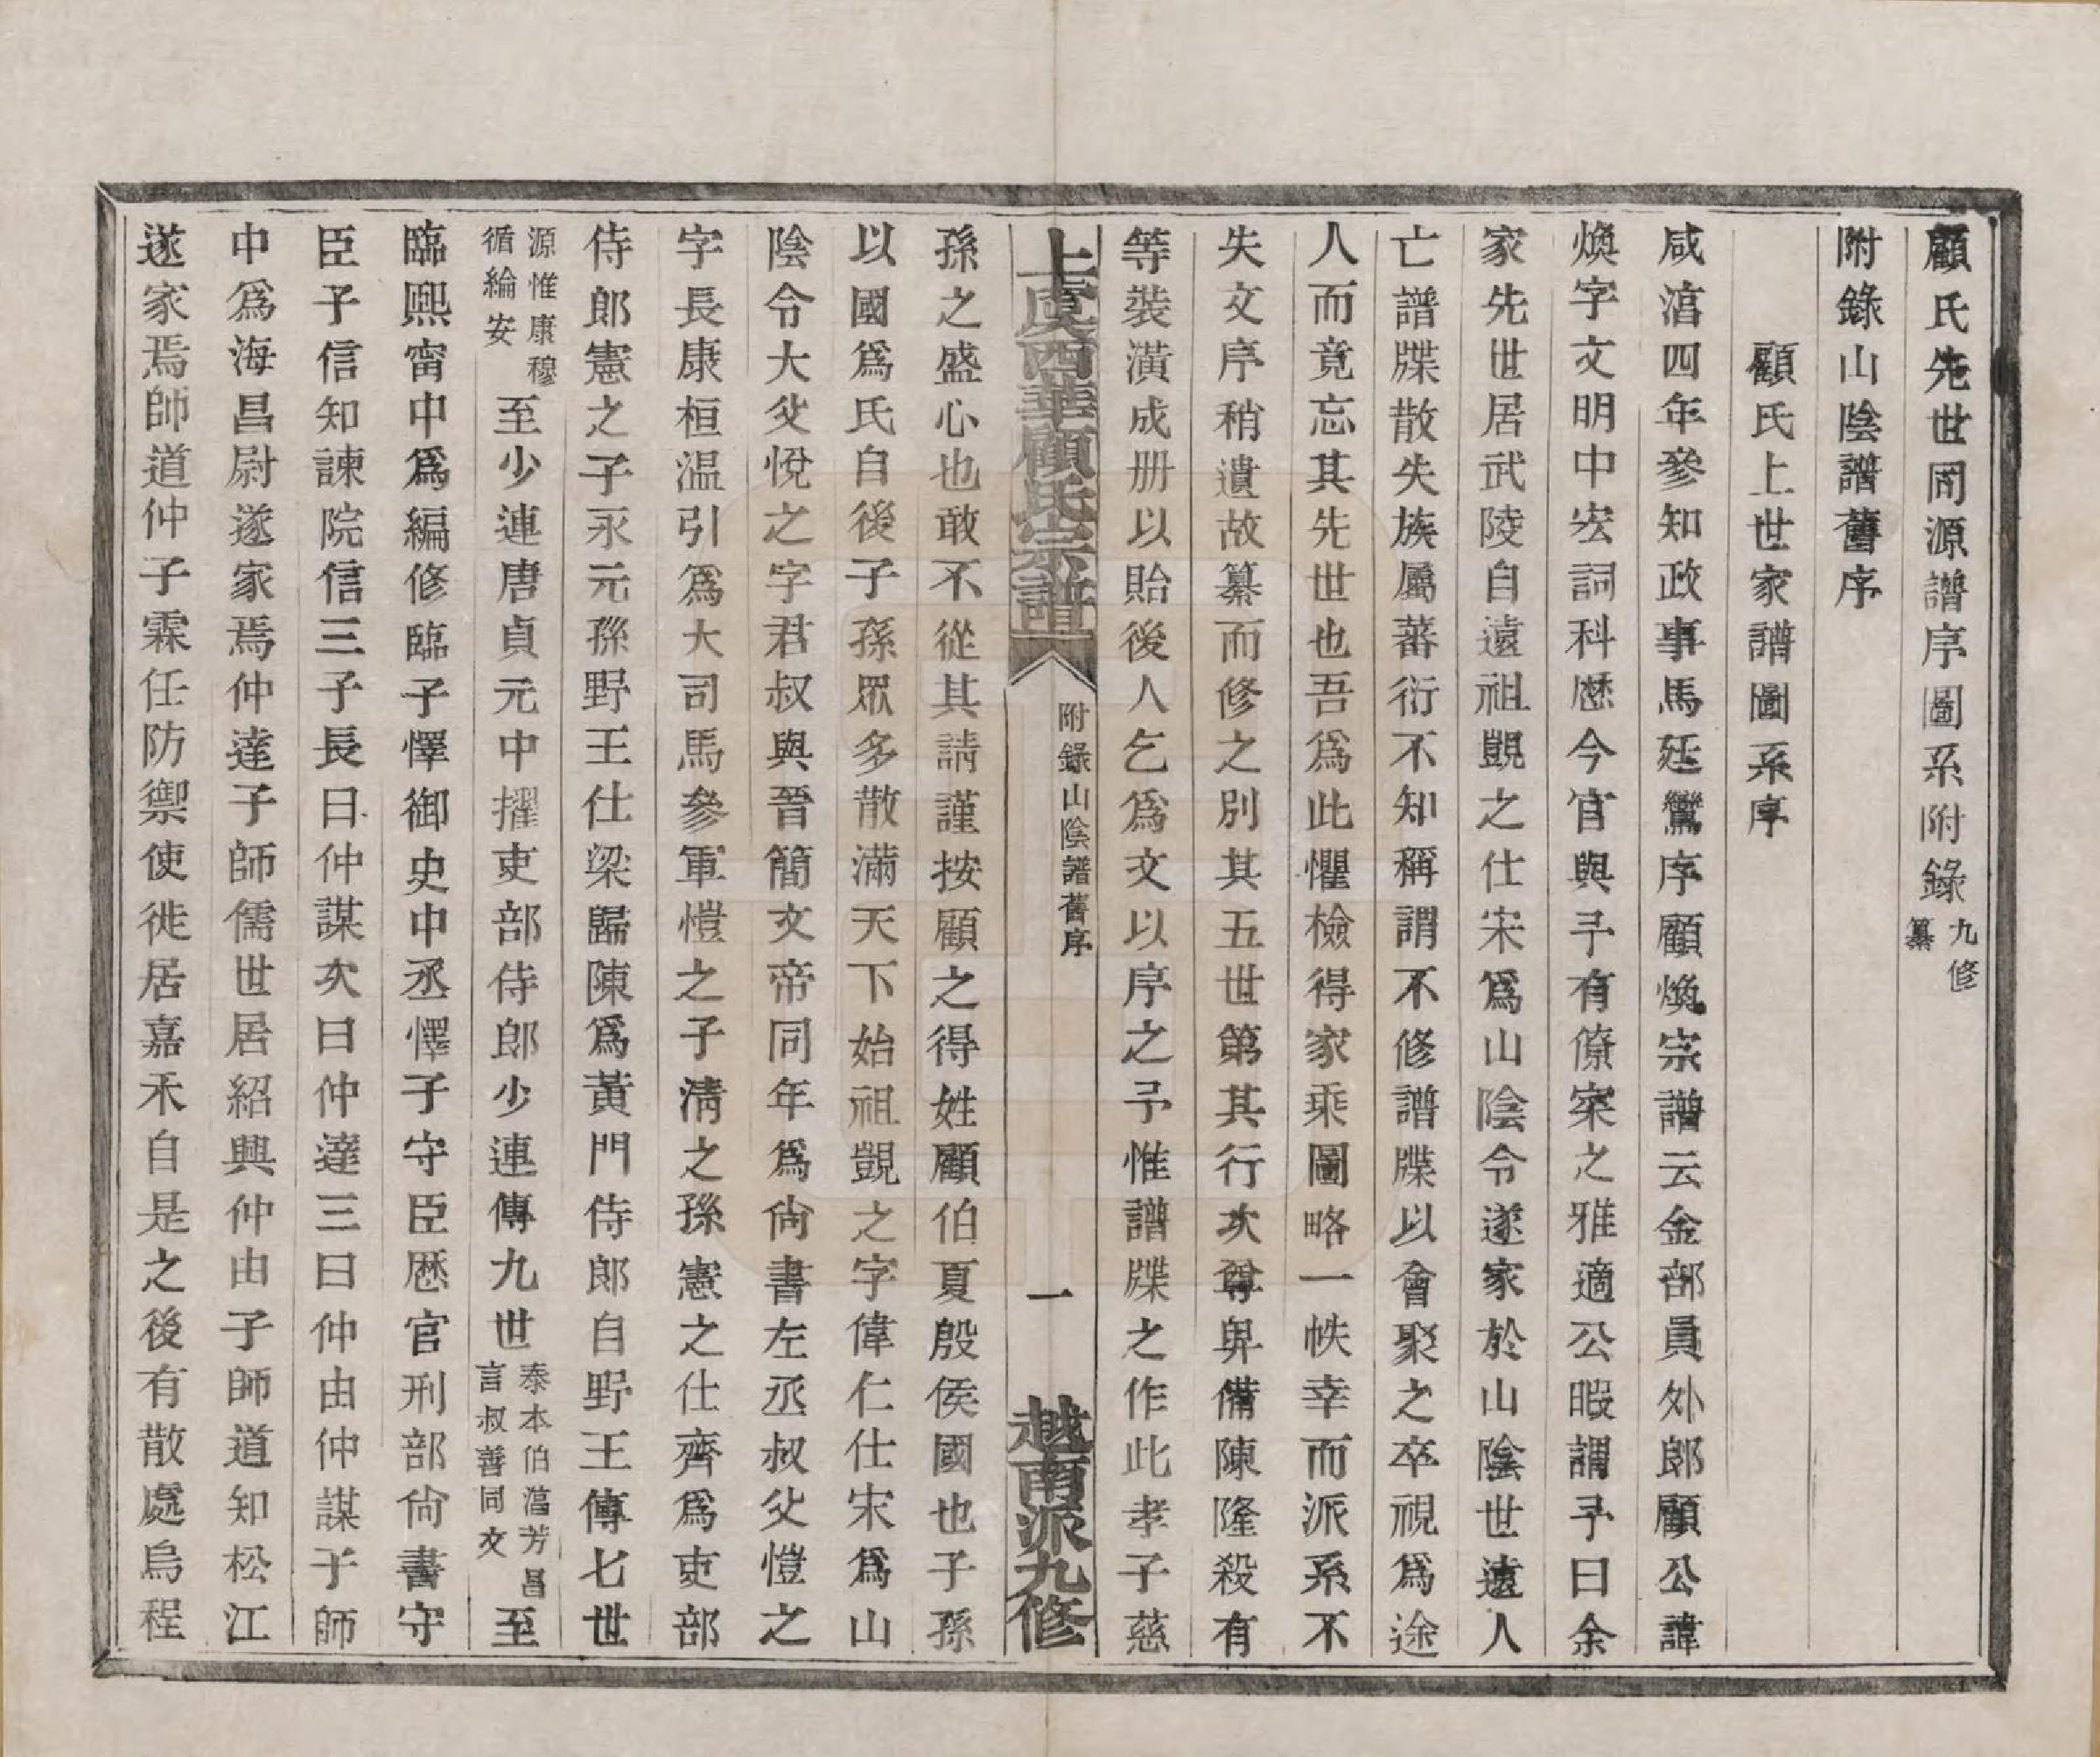 顧氏先世同源譜序圖系附錄九修纂
附錄山陰譜舊序
顧氏上世家譜圖系序
咸湻四年參知政事馬廷鸞序顧煥宗譜云金部員外郎顧公諱
煥字文明中宏詞科歷今官與予有僚寀之雅適公暇謂予曰余
家先世居武陵自遠祖覬之仕宋爲山陰令遂家於山陰世遠人
亡譜牒散失族屬蕃衍不知稱謂不修譜牒以會聚之卒視爲途
人而竟忘其先世也吾爲此懼檢得家乘圖略一帙幸而派系不
失文序稍遺故纂而修之別其五世第其行次尊卑備陳隆殺有
等裝潢成册以貽後人乞爲文以序之予惟譜牒之作此孝子慈
上虞西華顧氏宗譜
附錄山陰譜舊序
一
越南派九修
孫之盛心也敢不從其請謹按顧之得姓顧伯夏殷侯國也子孫
以國爲氏自後子孫眾多散滿天下始祖覬之字偉仁仕宋爲山
陰令大父悅之字君叔與晉簡文帝同年爲尙書左丞叔父愷之
字長康桓温引爲大司馬參軍愷之子淸之孫憲之仕齊爲吏部
侍郎憲之子永元孫野王仕梁歸陳爲黃門侍郎自野王傳七世
源惟康穆循綸安至少連唐貞元中擢吏部侍郎少連傳九世泰本伯湻芳昌言叔善同文至
臨熙甯中爲編修臨子懌御史中丞懌子守臣歷官刑部尙書守
臣子信知諫院信三子長曰仲謀次曰仲達三曰仲由仲謀于師
中爲海昌尉遂家焉仲達子師儒世居紹興仲由子師道知松江
遂家焉師道仲子霖任防禦使徙居嘉禾自是之後有散處烏程